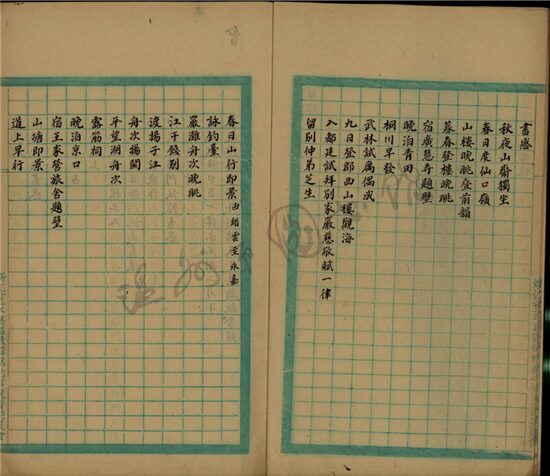 書感
秋夜山齋獨坐
春日度仙口嶺
山樓晚眺疊前韻
暮春登樓晚眺
宿廣慧寺題壁
晚泊青田
桐川早發
武林試闈偶成
九日登郡西山樓觀海
入都廷試拜別家嚴慈敬賦一律
留別仲弟芝生
春日山行即景由縉雲至永嘉
詠釣臺
嚴灘舟次晚眺
江干餞別
渡揚子江
舟次揚關
平望湖舟次
露筋祠
晚泊京口
宿王家營旅舍題壁
山塘即景
道上早行